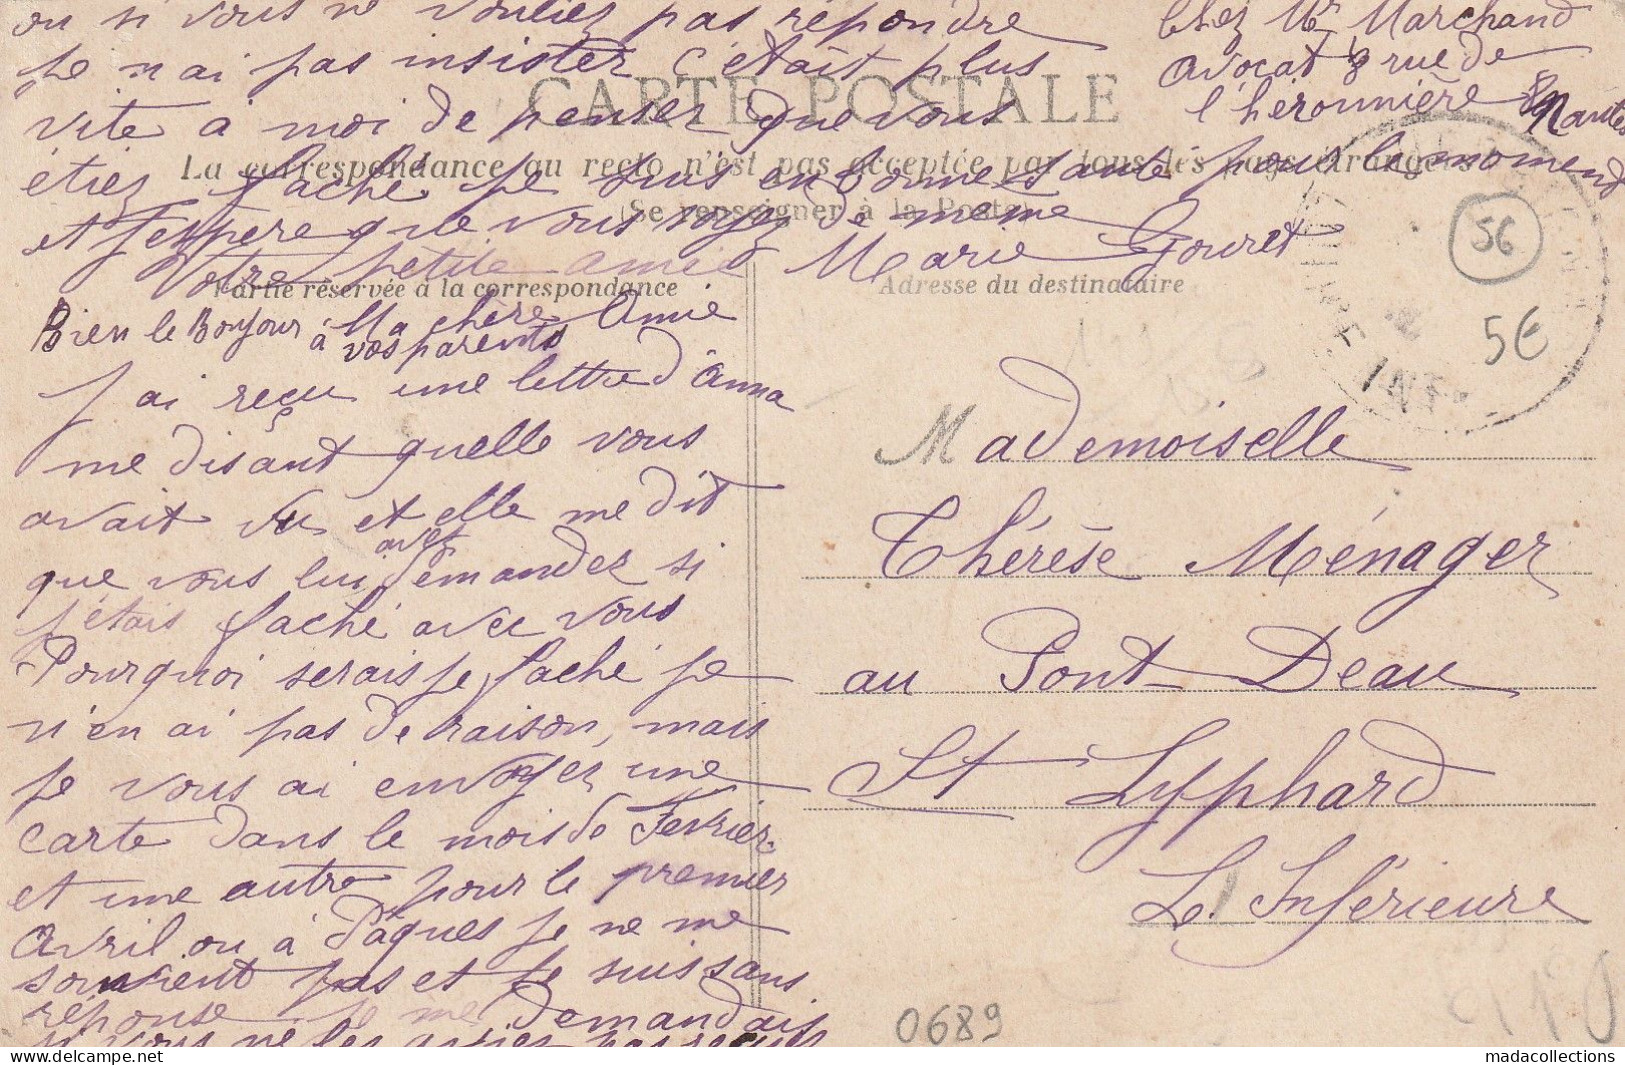 ou si vous ne vouliez pas répondre
je n'ai pas insister c'était plus
vite à moi de penser que vous
étiez fâché je suis en bonne santé pour le momend
et j'espère que vous soyez de même
Votre petite amie Marie Gouret
Chez Mr Marchand
avocat 8 rue de
l'héronnière 8 Nantes
CARTE POSTALE
La correspondance au recto n'est pas acceptée par tous les pays étrangers
(Se renseigner à la Poste)
Partie réservée à la correspondance
Adresse du destinataire
Bien le Bonjour à vos parents
Ma chère Amie
J'ai reçu une lettre d'Anna
me disant quelle vous
avait vu et elle me dit
que vous lui avez demandez si
j'étais faché avec vous
Pourquoi serais je faché je
n'en ai pas de raison, mais
je vous ai envoyez une
carte dans le mois de Fevrier
et une autre pour le premier
Avril ou à Pâques je ne me
souvient pas et je suis sans
réponse je me demandais
si vous ne les aviez pas reçues
Mademoiselle
Thérèse Ménager
au Pont Deau
St Lyphard
Le. Inférieure
56
5€
0689
madacollections